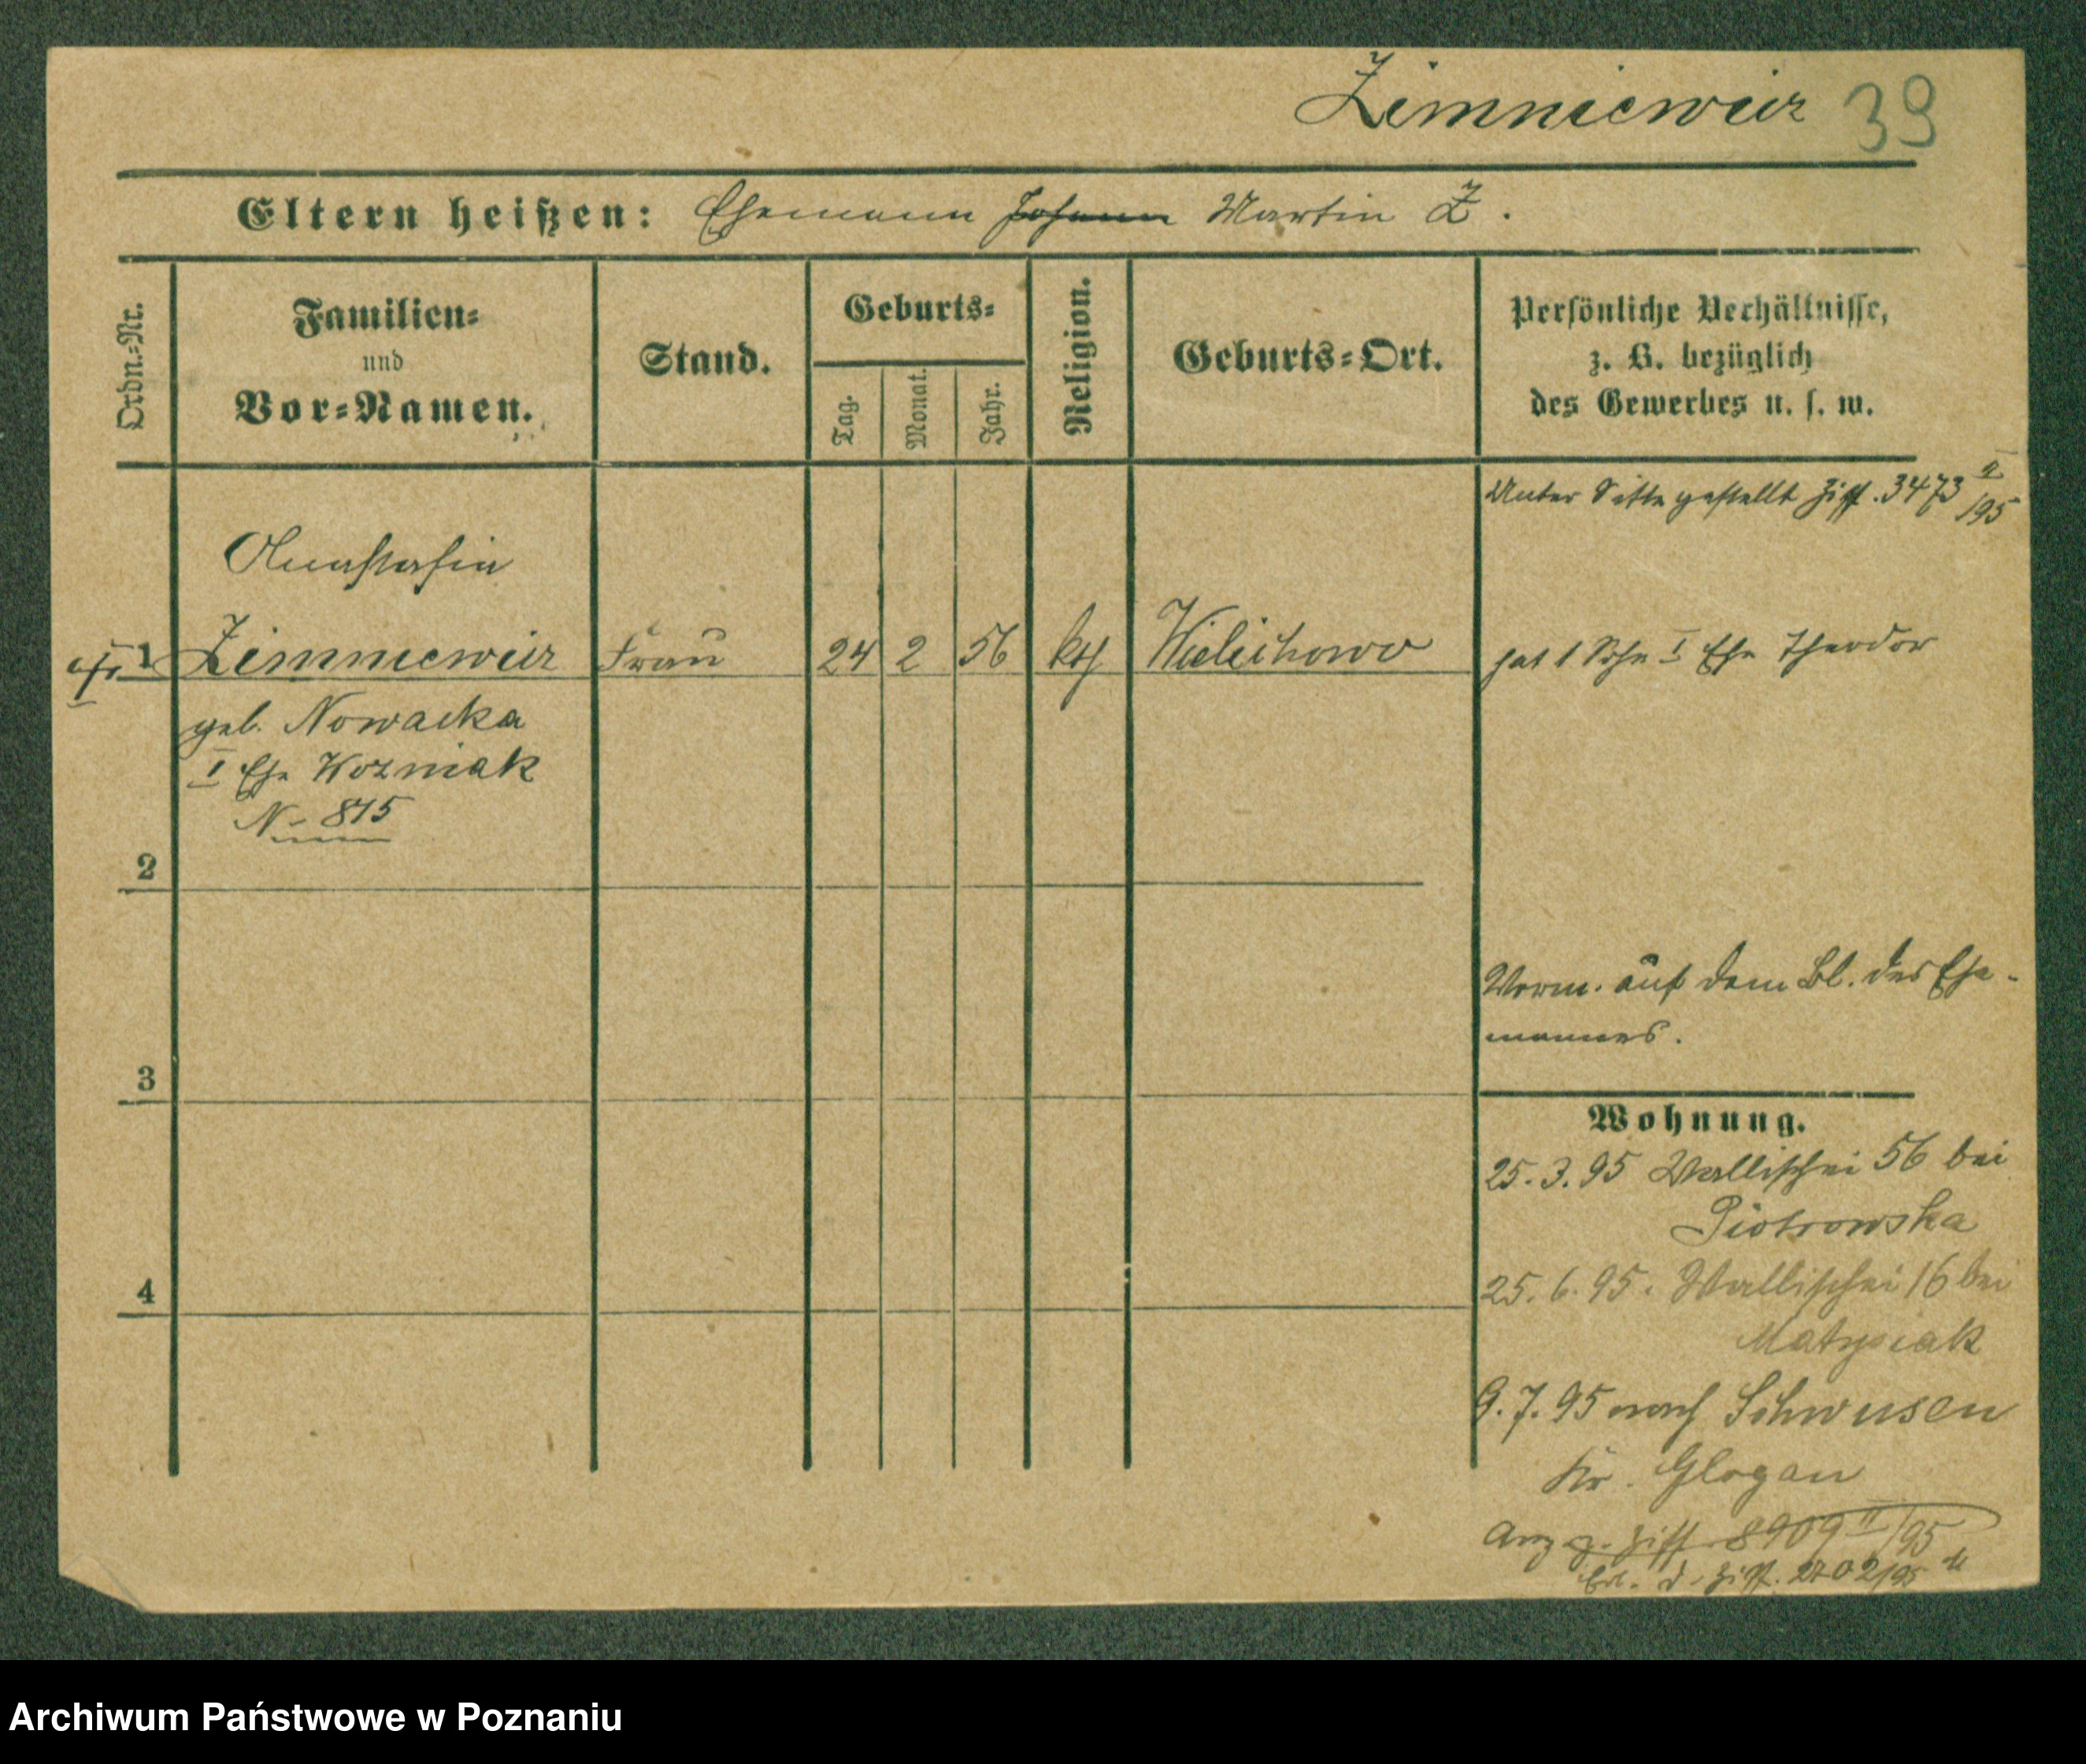 Zimniewicz 39
Eltern heißen: Ehemann Johann Martin Z.
Ordn.-Nr.
Familien-
und
Vor-Namen.
Stand.
Geburts-
Tag.
Monat.
Jahr.
Religion.
Geburts-Ort.
Persönliche Verhältnisse,
z. B. bezüglich
des Gewerbes u. s. w.
Unter Sitte gestellt Ziff. 3473 II/95
Anastasia
1 Zimniewicz Frau 24 2 56 kth Wielichowo hat 1 Sohn I Ehe Theodor
geb. Nowacka
I Ehe Wozniak
N 815
2
Verm. auf dem Bl. des Ehe-
mannes.
3
Wohnung.
25.3.95 Wallischei 56 bei
Piotrowska
25.6.95. Wallischei 16 bei
Matysiak
4
9.7.95 nach Schwusen
Kr. Glogau
Anz z. Ziff. 8909 II/95
d. Ziff. 2702/95
Archiwum Państwowe w Poznaniu